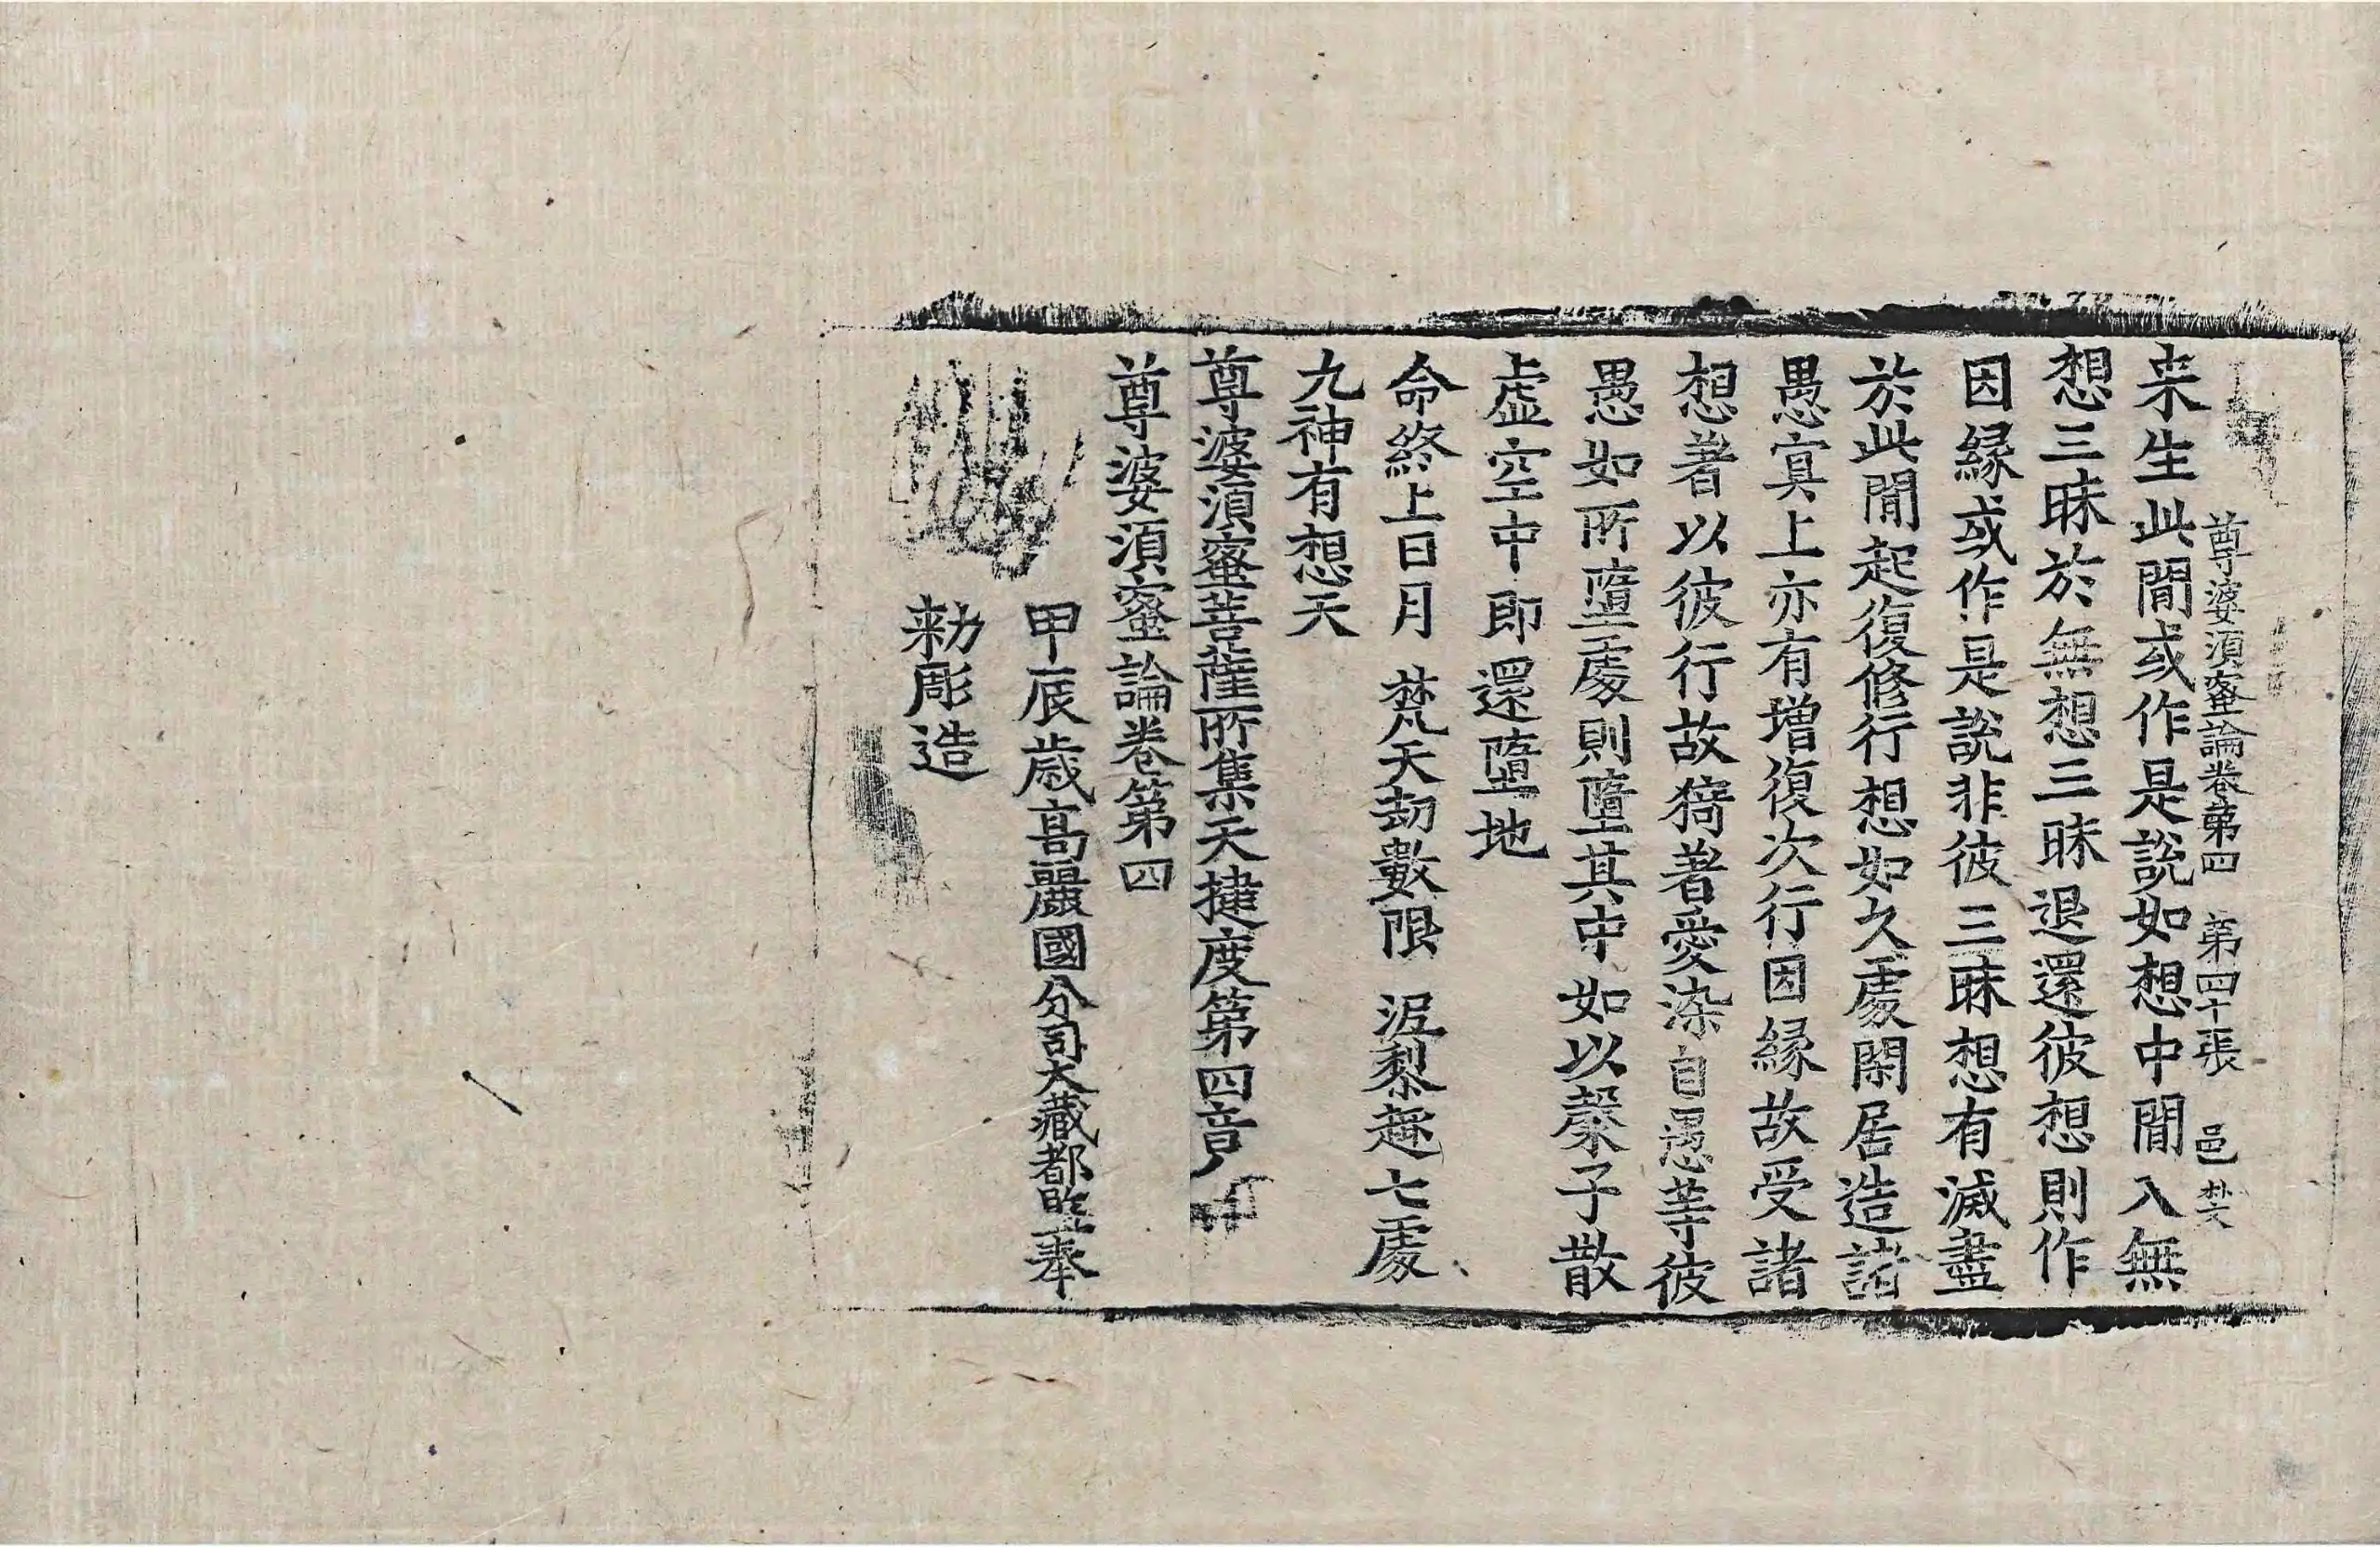 尊婆須蜜論卷第四 第四十張 邑
来生此閒或作是說如想中閒入無
想三昧於無想三昧退還彼想則作
因緣或作是說非彼三昧想有滅盡
於此閒起復修行想如久處閑居造諸
愚冥上亦有增復次行因緣故受諸
想著以彼行故猗著愛染自愚等彼
愚如所墮處則墮其中如以槃子散
虛空中即還墮地
命終上日月 梵天劫數限 泥黎趣七處
九神有想天
尊婆須蜜菩薩所集天揵度第四章
尊婆須蜜論卷第四
甲辰歲高麗國分司大藏都監奉
勑彫造